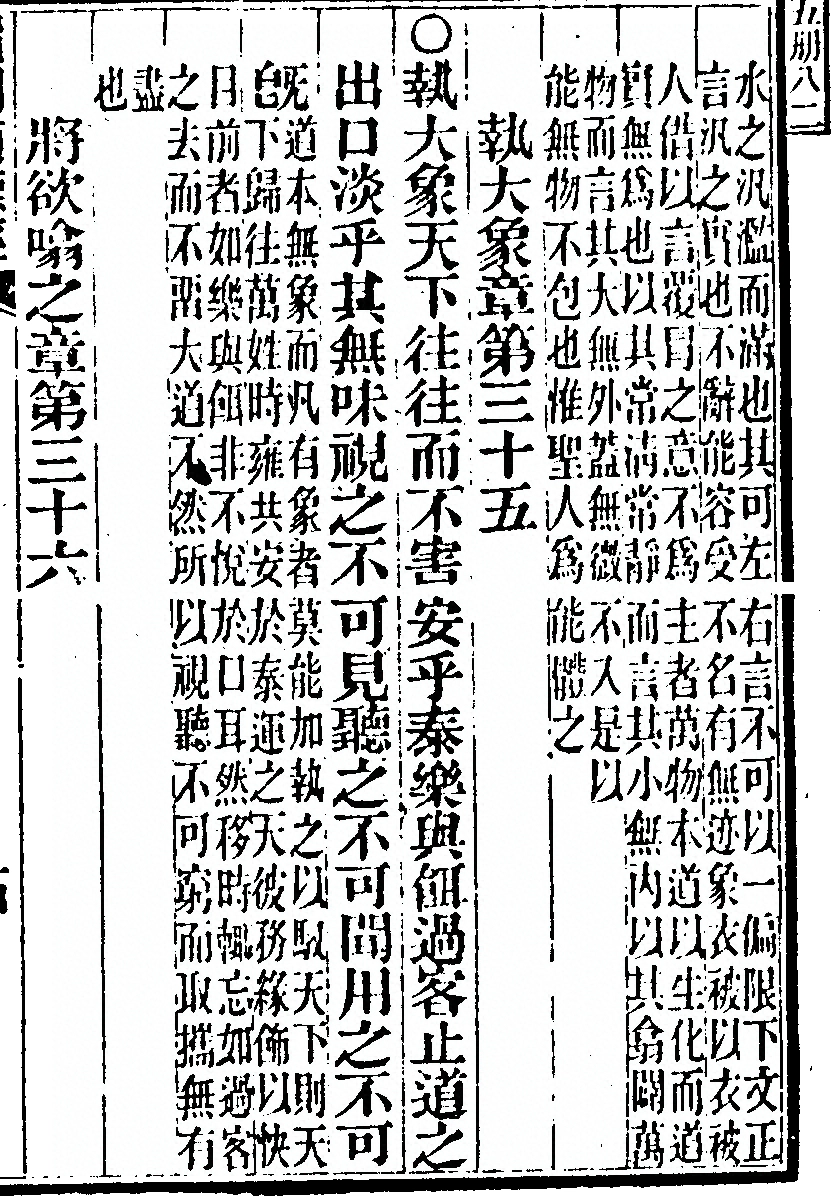 五册八二
水之汎濫而滿也其可左右言不可以一偏限下文正
言汎之實也不辭能容受不名有無迹象衣被以衣被
人借以言覆冐之意不爲主者萬物本道以生化而道
實無爲也以其常清常靜而言其小無內以其翕闢萬
物而言其大無外蓋無微不入是以
能無物不包也惟聖人爲能體之
執大象章第三十五
○執大象天下往往而不害安乎泰樂與餌過客止道之
出口淡乎其無味視之不可見聽之不可聞用之不可
旣道本無象而凡有象者莫能加執之以馭天下則天
下歸往萬姓時雍共安於泰運之天彼務緣飾以快
目前者如樂與餌非不悅於口耳然移時輒忘如過客
之去而不留大道不然所以視聽不可窮而取攜無有
盡
也
將欲噏之章第三十六